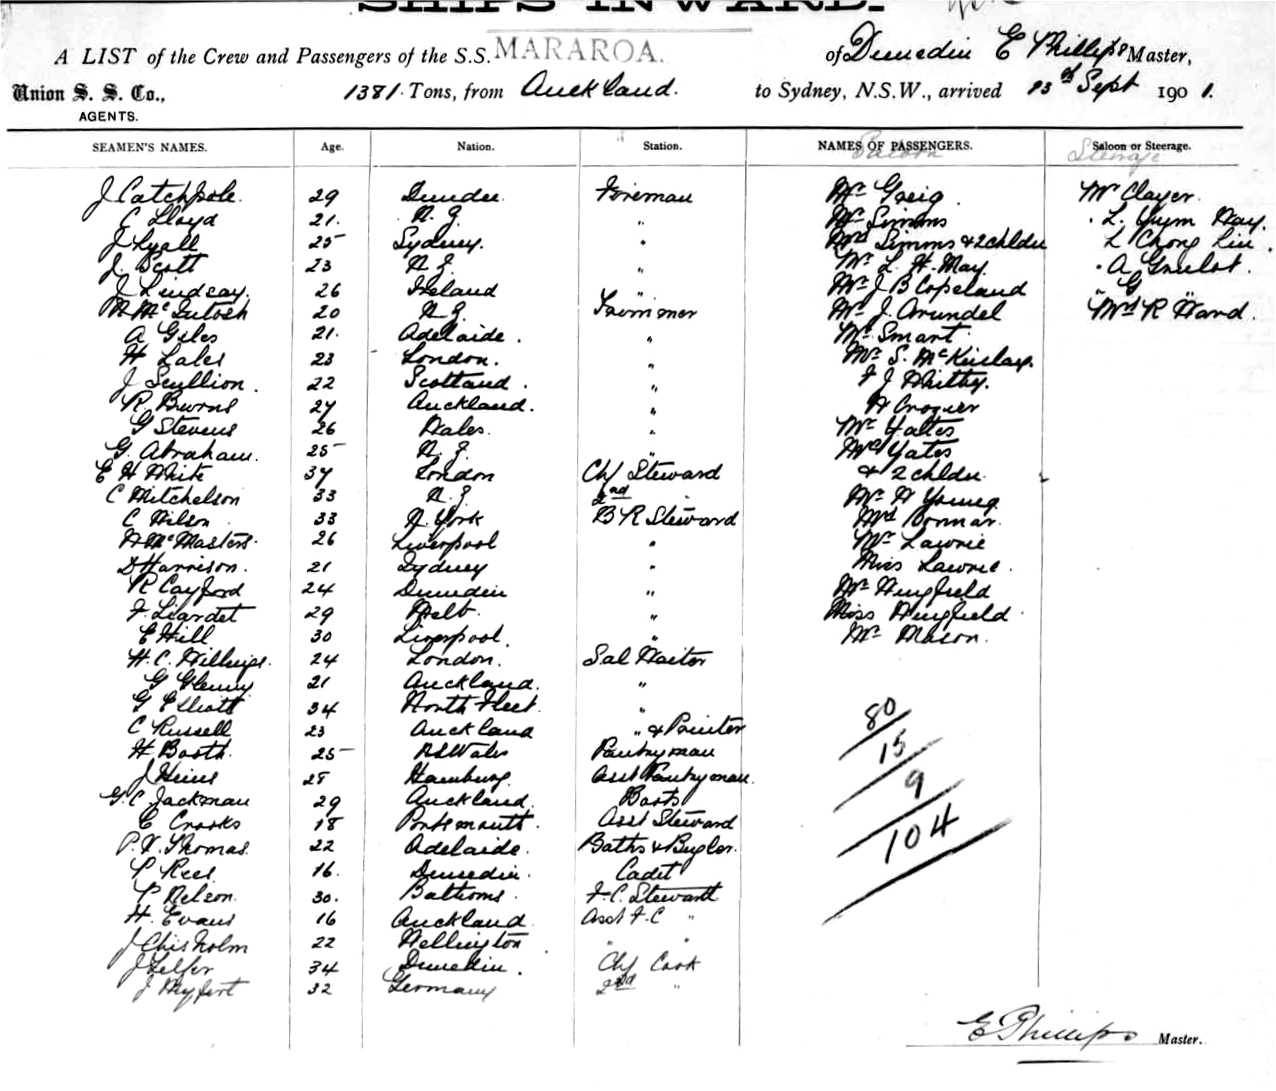 SHIPS INWARD.
A LIST of the Crew and Passengers of the S.S. MARAROA. of Dunedin E Phillips Master,
Union S. S. Co., 1381 Tons, from Auckland. to Sydney, N.S.W., arrived 13th Sept 1901.
AGENTS.
SEAMEN'S NAMES. Age. Nation. Station. NAMES OF PASSENGERS. Saloon or Steerage.
Saloon Steerage
J Catchpole. 29 Dundee Foreman Mr Greig. Mr Clayer.
C Lloyd 21. N.Z. " Mr Simms . L. Yum Hay.
J Lyall 25 Sydney. " Mrs Simms & 2 chldn L Chong Lin.
J. Scott 23 N.Z. " Mr L. H. May. . A
J Lindsay. 26 Ireland " Mr J B Copeland " G "
M McIntosh 20 N.Z. Trimmer Mr J. Arundel Mrs R Ward.
A Giles 21. Adelaide. " Mr Smart
H Lales 23 London. " Mr S. McKinlay.
J Scullion. 22 Scotland. " F J Whitby.
R Burns 27 Auckland. " A Croquer
G Stevens 26 Wales. " Mr Yates
G. Abraham. 25 N.Z. " Mrs Yates
E H White 37 London Chf Steward & 2 chldn
C Mitchelson 33 N.Z. 2nd " Mr H Young
C Wilson 33 N. York B R Steward Mrs Bonnar.
W McMasters. 26 Liverpool " Mr Lawrie
D Harrison. 21 Sydney " Miss Lawrie.
R Cayford 24 Dunedin " Mr Wingfield
F. Liardet 29 Melb. " Miss Wingfield
E Hill 30 Liverpool. " Mr Mason.
H. C. Phillips. 24 London. Sal Waiter
G Glenny 21 Auckland. "
G Elliott 34 North Fleet "
C Russell 23 Auckland " & Printer
H Booth. 25 NSWales Pantryman
J Heins 28 Hamburg. Asst Pantryman.
G. C. Jackman 29 Auckland. Boots
C Crooks 18 Portsmouth. Asst Steward
P. V. Thomas. 22 Adelaide. Baths & Bugler.
P Rees 16. Dunedin. Cadet
P Nelson. 30. F.C. Steward
H. Evans 16 Auckland. Asst F.C "
J Chisholm 22 Wellington " "
J Telfer 34 Dunedin. Chf Cook
J 32 Germany 2nd "
80
15
9
104
E Phillips Master.